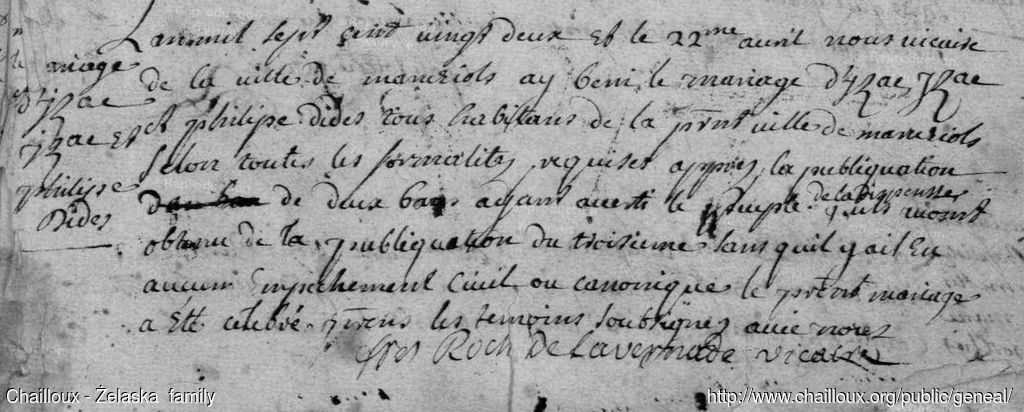 Lan mil sept cent vingt deux et le 22me avril nous vicaire
mariage
de la ville de maruejols ay beni le mariage d'yzac yzac
d'yzac
yzac et
et philipe dides tous habitans de la prnt ville de maruejols
selon toutes les formalites requises appres la publiquation
philipe
dides
de deux bans ayant averti le peuple de la dispense quils mont
obtenu de la publiquation du troisieme sans quil y ait eu
aucun empechement civil ou canonique le prnt mariage
a ette celebré prens les temoins soubsignes avec nores
Roch De Lavernede vicaire
Chailloux - Żelaska family
http://www.chailloux.org/public/geneal/